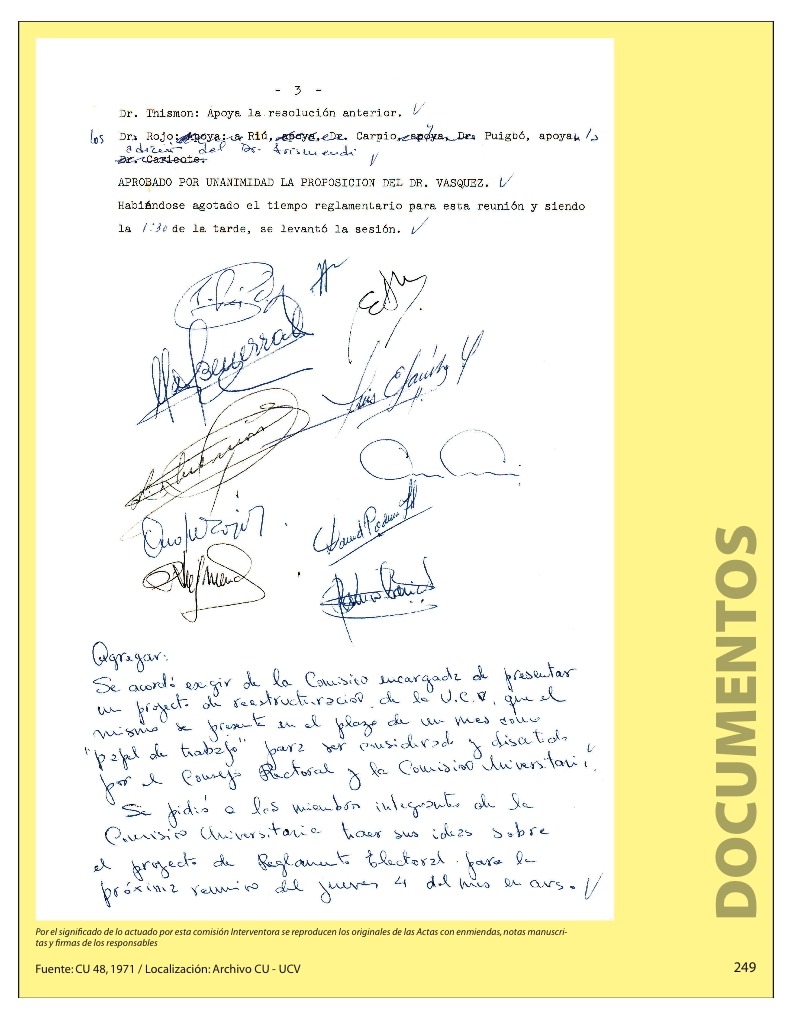 - 3 -
Dr. Thismon: Apoya la resolución anterior.
los Drs Rojo; Riú, Dr. Carpio, y Dr. Puigbó, apoyan la
adición del Dr. Arismendi
Dr. Cariente.
APROBADO POR UNANIMIDAD LA PROPOSICION DEL DR. VASQUEZ.
Habiéndose agotado el tiempo reglamentario para esta reunión y siendo
la 1:30 de la tarde, se levantó la sesión.
Agregar:
Se acordó exigir de la Comisión encargada de presentar
un proyecto de reestructuración de la U.C.V, que el
mismo se presente en el plazo de un mes como
"papel de trabajo" para ser considerado y discutido
por el Consejo Rectoral y la Comisión Universitaria.
Se pidió a los miembros integrantes de la
Comisión Universitaria traer sus ideas sobre
el proyecto de Reglamento Electoral para la
próxima reunión del jueves 4 del mes en curso.
DOCUMENTOS
Por el significado de lo actuado por esta comisión Interventora se reproducen los originales de las Actas con enmiendas, notas manuscri-
tas y firmas de los responsables
Fuente: CU 48, 1971 / Localización: Archivo CU - UCV
249